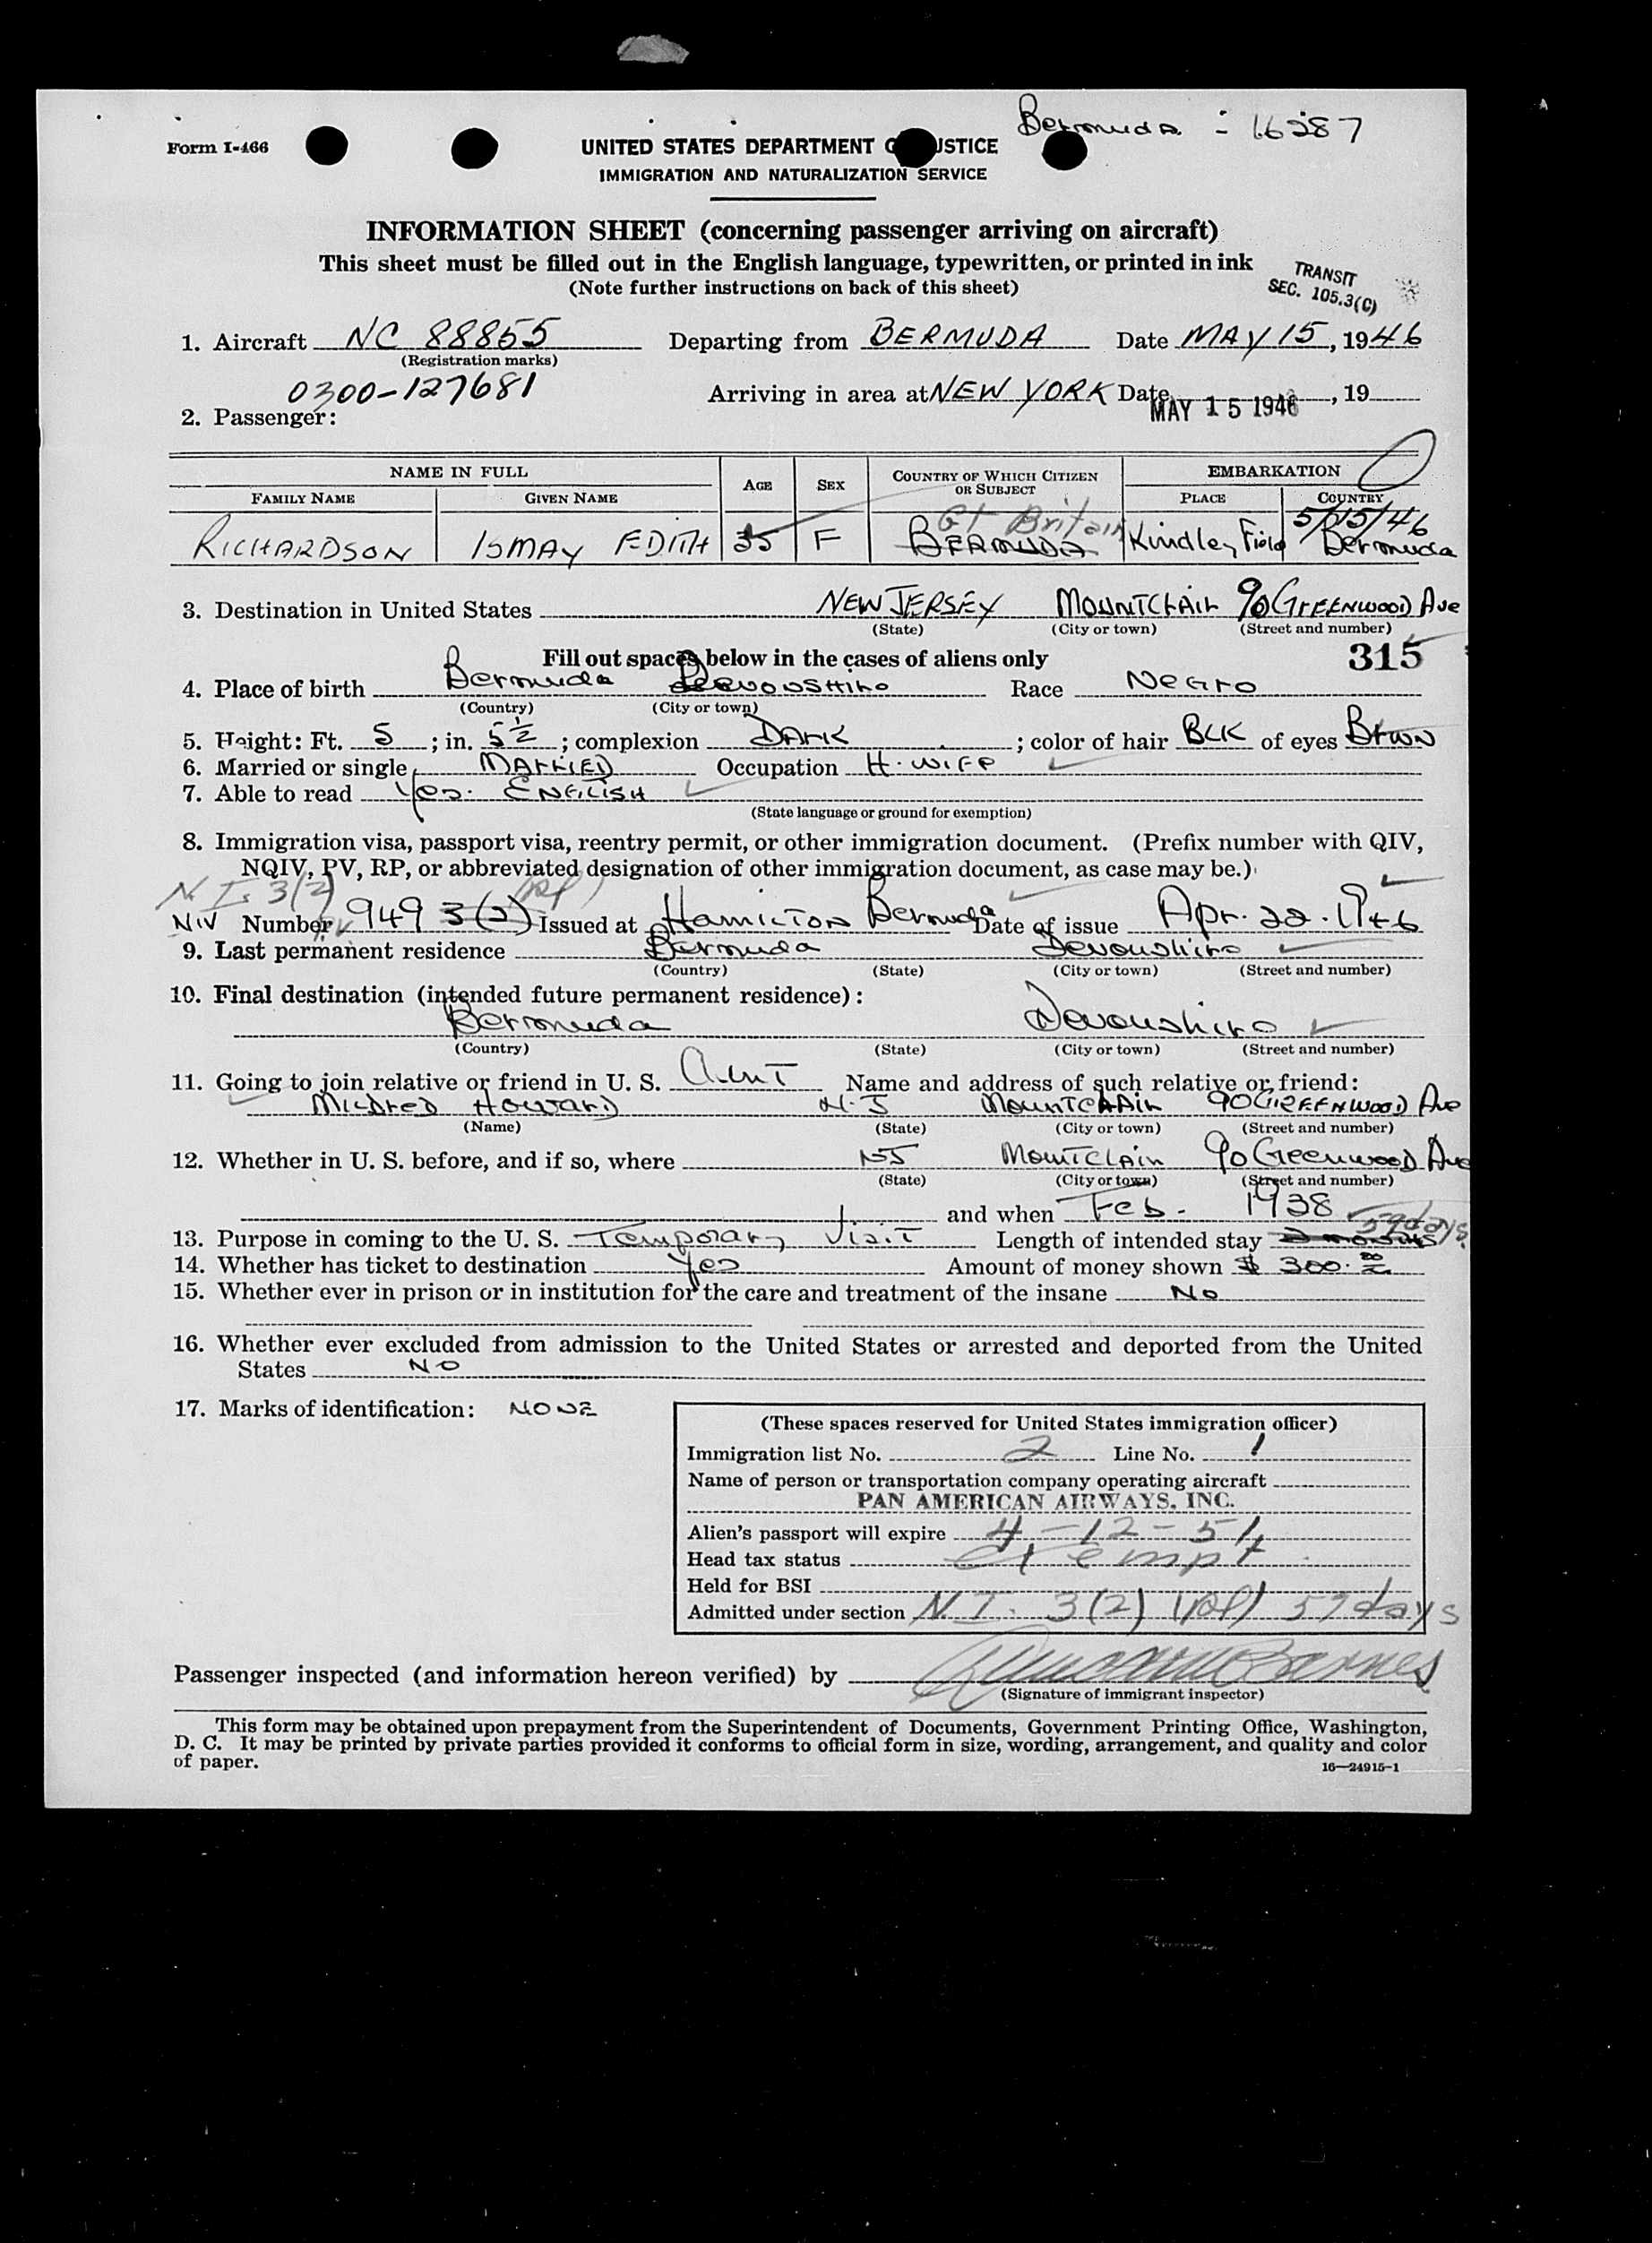 Bermuda - 16287
Form I-466
UNITED STATES DEPARTMENT O JUSTICE
IMMIGRATION AND NATURALIZATION SERVICE
INFORMATION SHEET (concerning passenger arriving on aircraft)
This sheet must be filled out in the English language, typewritten, or printed in ink
(Note further instructions on back of this sheet)
TRANSIT
SEC. 105.3(C)
1. Aircraft NC 88855 Departing from BERMUDA Date MAY 15, 1946
(Registration marks)
0300-127681 Arriving in area at NEW YORK Date MAY 15 1946, 19
2. Passenger:
NAME IN FULL AGE SEX COUNTRY OF WHICH CITIZEN OR SUBJECT EMBARKATION
FAMILY NAME GIVEN NAME PLACE COUNTRY
Gt Britain 5/15/46
RICHARDSON ISMAY EDITH 35 F BERMUDA Kindley Field Bermuda
3. Destination in United States NEW JERSEY MOUNTCLAIR 90 GREENWOOD Ave
(State) (City or town) (Street and number)
Fill out spaces below in the cases of aliens only 315
4. Place of birth Bermuda Devonshire Race Negro
(Country) (City or town)
5. Height: Ft. 5; in. 5½; complexion DARK; color of hair BLK of eyes Brwn
6. Married or single MARRIED Occupation H. WIFE
7. Able to read Yes. ENGLISH
(State language or ground for exemption)
8. Immigration visa, passport visa, reentry permit, or other immigration document. (Prefix number with QIV,
NQIV, PV, RP, or abbreviated designation of other immigration document, as case may be.)
N. I. 3(2)
NIV Number PV 949 3(2) Issued at Hamilton Bermuda Date of issue Apr. 22. 1946
9. Last permanent residence Bermuda Devonshire
(Country) (State) (City or town) (Street and number)
10. Final destination (intended future permanent residence):
Bermuda Devonshire
(Country) (State) (City or town) (Street and number)
11. Going to join relative or friend in U. S. Aunt Name and address of such relative or friend:
Mildred Howard N.J Mountclair 90 GREENWOOD Ave
(Name) (State) (City or town) (Street and number)
12. Whether in U. S. before, and if so, where NJ Montclair 90 Greenwood Ave
(State) (City or town) (Street and number)
and when Feb. 1938
59 days
13. Purpose in coming to the U. S. Temporary Visit Length of intended stay 2 months
14. Whether has ticket to destination Yes Amount of money shown $ 300.00
15. Whether ever in prison or in institution for the care and treatment of the insane No
16. Whether ever excluded from admission to the United States or arrested and deported from the United
States NO
17. Marks of identification: NONE
(These spaces reserved for United States immigration officer)
Immigration list No. 2 Line No. 1
Name of person or transportation company operating aircraft
PAN AMERICAN AIRWAYS, INC.
Alien's passport will expire 4-12-51
Head tax status exempt
Held for BSI
Admitted under section N. I. 3(2) 59 days
Passenger inspected (and information hereon verified) by Barnes
(Signature of immigrant inspector)
This form may be obtained upon prepayment from the Superintendent of Documents, Government Printing Office, Washington,
D. C. It may be printed by private parties provided it conforms to official form in size, wording, arrangement, and quality and color
of paper.
16—24915-1